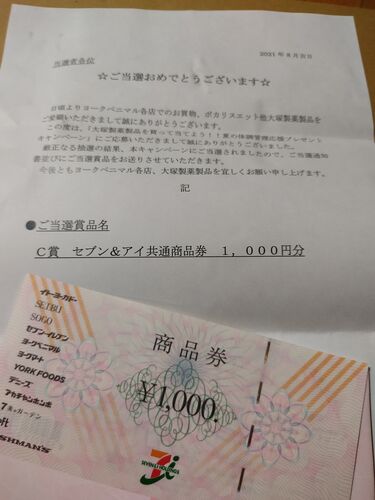 2021年8月吉日
当選者各位
☆ご当選おめでとうございます☆
日頃よりヨークベニマル各店でのお買物、ポカリスエット他大塚製薬製品を
ご愛顧いただきまして誠にありがとうございます。
この度は、「大塚製薬製品を買って当てよう！！夏の体調管理応援プレゼント
キャンペーン」にご応募いただきまして誠にありがとうございました。
厳正なる抽選の結果、本キャンペーンにご当選されましたので、ご当選通知
書並びにご当選賞品をお送りさせていただきます。
今後ともヨークベニマル各店、大塚製薬製品を宜しくお願い申し上げます。
記
●ご当選賞品名
C賞 セブン＆アイ共通商品券 １，０００円分
イトーヨーカドー
SEIBU
SOGO
セブン-イレブン
ヨークベニマル
ヨークマート
YORK FOODS
デニーズ
アカチャンホンポ
7美のガーデン
SHMAN'S
商品券
¥1,000.
SEVEN & i HOLDINGS